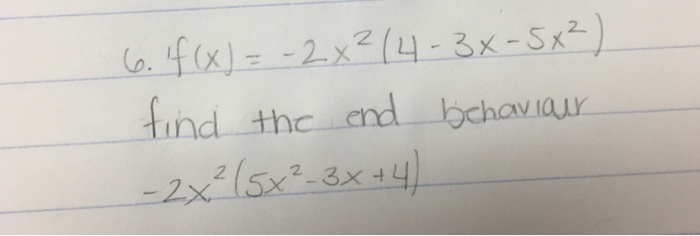 6. f(x) = -2x²(4-3x-5x²)
find the end behaviour
-2x²(5x²-3x+4)